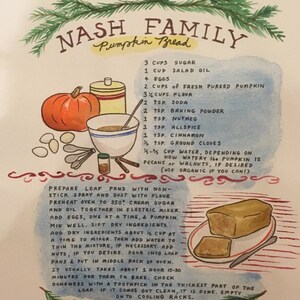 NASH FAMILY
Pumpkin Bread
3 CUPS SUGAR
1 CUP SALAD OIL
4 EGGS
2 CUPS OF FRESH PUREED PUMPKIN
3 ½ CUPS FLOUR
2 TSP. SODA
2 TSP. BAKING POWDER
1 TSP. NUTMEG
1 TSP. ALLSPICE
1 TSP. CINNAMON
½ TSP. GROUND CLOVES
CUP WATER, DEPENDING ON
HOW WATERY THE PUMPKIN IS
PECANS OR WALNUTS, IF DESIRED
(USE ORGANIC IF YOU CAN!)
PREPARE LOAF PANS WITH NON-
STICK SPRAY AND DUST WITH FLOUR.
PREHEAT OVEN TO 350° CREAM SUGAR
AND OIL TOGETHER IN ELECTRIC MIXER.
ADD EGGS, ONE AT A TIME, & PUMPKIN.
MIX WELL. SIFT DRY INGREDIENTS.
ADD DRY INGREDIENTS ABOUT ½ CUP AT
A TIME TO MIXER. THEN ADD WATER TO
THIN THE MIXTURE, IF NECESSARY. ADD
NUTS, IF YOU DESIRE. POUR INTO LOAF
PANS & PUT IN MIDDLE RACK OF OVEN.
IT USUALLY TAKES ABOUT 1 HOUR
MINUTES FOR THEM TO BAKE. CHECK
DONENESS WITH A TOOTHPICK IN THE THICKEST PART OF THE
LOAF. IF IT COMES OUT CLEAN, IT IS DONE. EMPTY
ONTO COOLING RACKS.